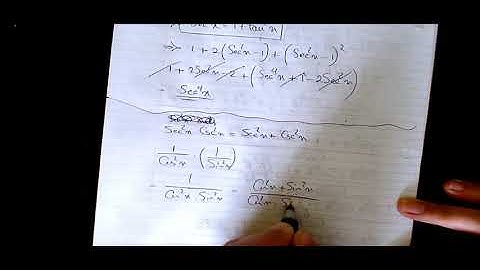 Sec²x = 1 + tan²x
⇒ 1 + 2(Sec²x - 1) + (Sec²x - 1)²
1 + 2Sec²x - 2 + (Sec⁴x + 1 - 2Sec²x)
= Sec⁴x
Sec²x Csc²x = Sec²x + Csc²x
1/Cos²x (1/Sin²x)
= 1/Cos²x Sin²x = Cos²x + Sin²x/Cos²x · Si